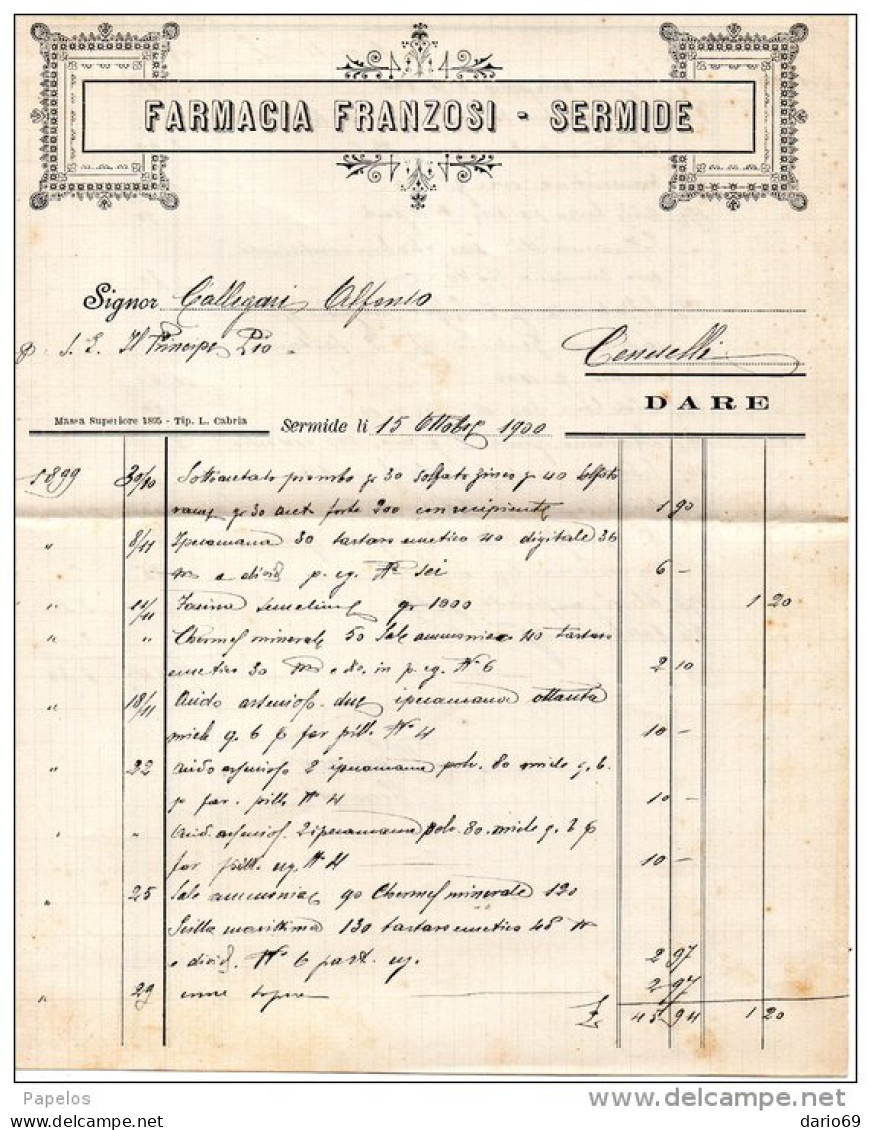 FARMACIA FRANZOSI - SERMIDE
Signor Callegari Alfonso
p. S. E. Il Principe Pio
Ceneselli
DARE
Massa Superiore 1895 - Tip. L. Cabria
Sermide li 15 Ottobre 1900
1899 30/10 Sottoacetato piombo gr 30 solfato zinco gr 40 solfato
rame gr 30 acet forte 200 con recipiente 1 90
" 8/11 Ipecacuana 30 tartaro emetico 40 digitale 36
M e divid p. eg. N° sei 6 -
" 11/11 Farina semelino gr 1000 1 20
" " Chermes minerale 50 Sale ammoniaco 40 tartaro
emetico 30 in p. eg. N° 6 2 10
" 18/11 Acido arsenioso due ipecacuana ottanta
miele q. b p far pill. N° 4 10 -
" 22 Acido arsenioso 2 ipecacuana polv. 80 miele q. b.
p far. pill. N° 4 10 -
" " Acid. arsenios. 2 ipecacuana polv. 80. miele q. b p
far pill. eg. N° 4 10 -
" 25 Sale ammoniac 90 Chermes minerale 120
Scilla marittima 130 tartaro emetico 48 M
e divid. N° 6 part. eg. 2 97
" 29 come sopra 2 97
£ 45 94 1 20
Papelos
delcampe.net
dario69